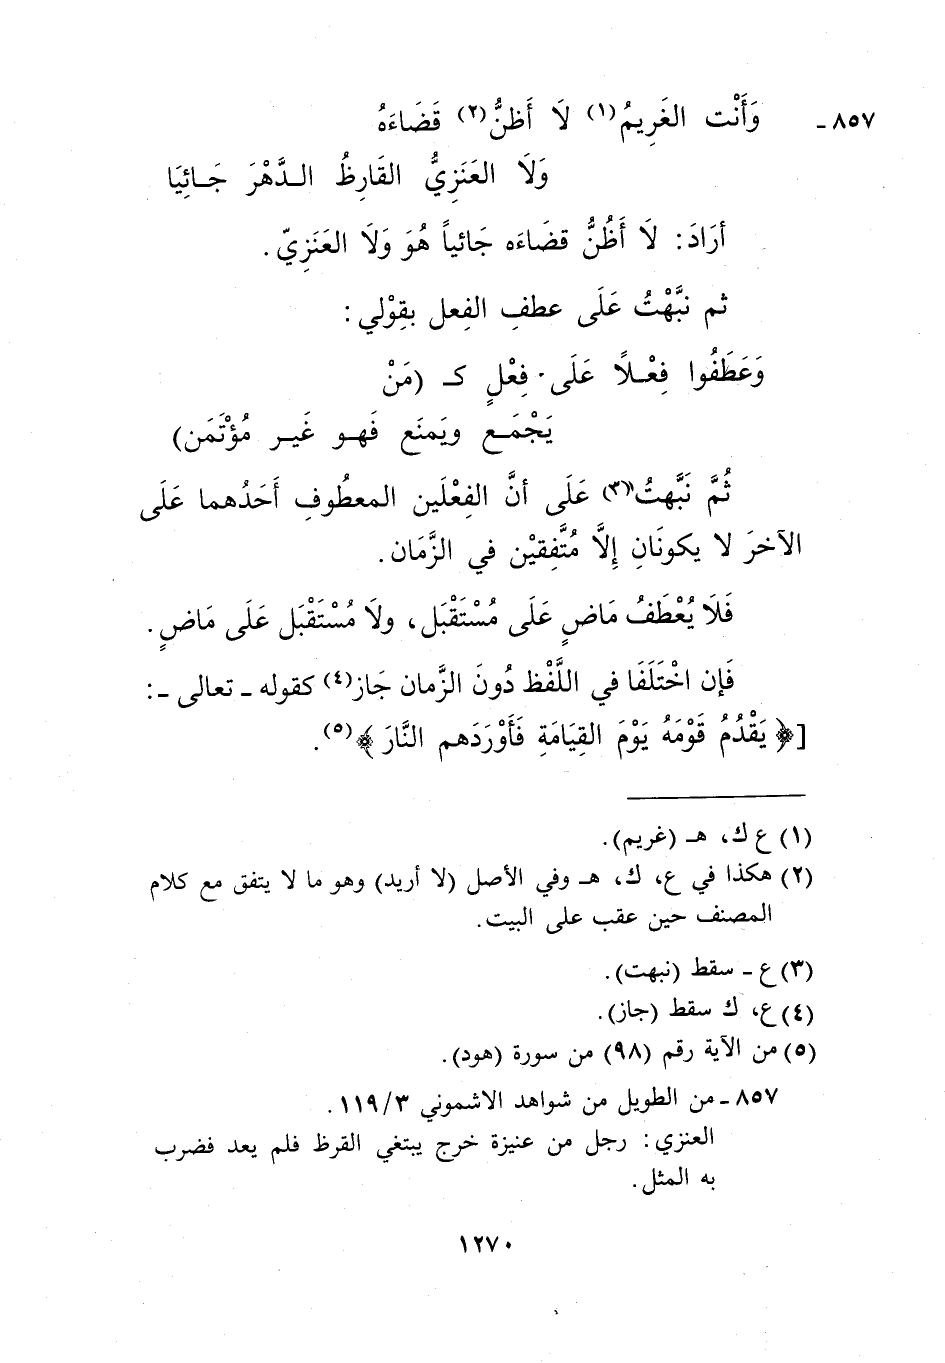 ٨٥٧ - وَأَنْت الغَرِيمُ(١) لَا أَظنُّ(٢) قَضَاءَهُ
وَلَا العَنَزِيُّ القَارِظُ الـدَّهْرَ جَـائِيَا
أرَادَ: لَا أَظُنُّ قضَاءَه جَائياً هُوَ وَلَا العَنَزِيّ.
ثم نبَّهْتُ عَلَى عطفِ الفِعل بقوْلي:
وَعَطَفُوا فِعْـلاً عَلَى فِعْلٍ كـ (مَنْ
يَجْمَـع ويَمنَع فَهـو غَيـر مُؤْتَمَن)
ثُمَّ نَبَّهتُ(٣) عَلَى أنَّ الفِعْلَين المعطُوفِ أَحَدُهما عَلَى
الآخرَ لا يكونَانِ إِلَّا مُتَّفِقيْن في الزَّمَان.
فَلَا يُعْطَفُ مَاضٍ عَلَى مُسْتَقْبَل، ولَا مُسْتَقْبَل عَلَى مَاضٍ.
فَإن اخْتَلَفَا في اللَّفْظ دُونَ الزَّمان جَاز(٤) كقوله ـ تعالى ـ:
[﴿يَقْدُمُ قَوْمَهُ يَوْمَ القِيَامَةِ فَأَوْرَدَهم النَّارَ﴾(٥).
(١) ع ك، هـ (غريم).
(٢) هكذا في ع، ك، هـ وفي الأصل (لا أريد) وهو ما لا يتفق مع كلام
المصنف حين عقب على البيت.
(٣) ع ـ سقط (نبهت).
(٤) ع، ك سقط (جاز).
(٥) من الآية رقم (٩٨) من سورة (هود).
٨٥٧ ـ من الطويل من شواهد الاشموني ١١٩/٣.
العنزي: رجل من عنيزة خرج يبتغي القرظ فلم يعد فضرب
به المثل.
١٢٧٠